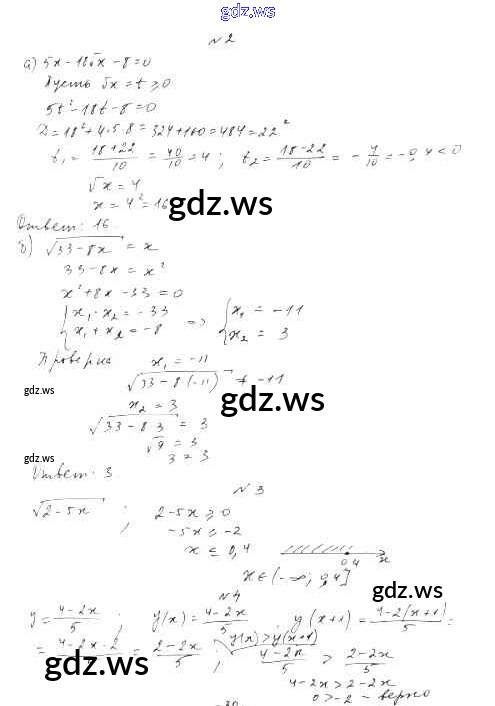 gdz.ws
№2
а) 5x - 18√x - 8 = 0
Пусть √x = t ≥ 0
5t² - 18t - 8 = 0
D = 18² + 4·5·8 = 324 + 160 = 484 = 22²
t₁ = (18+22)/10 = 40/10 = 4 ; t₂ = (18-22)/10 = -4/10 = -0,4 < 0
√x = 4
x = 4² = 16
gdz.ws
Ответ: 16.
б) √(33-8x) = x
33 - 8x = x²
x² + 8x - 33 = 0
{x₁·x₂ = -33 => {x₁ = -11
{x₁ + x₂ = -8 {x₂ = 3
Проверка x₁ = -11
√(33-8·(-11)) ≠ -11
gdz.ws
gdz.ws
x₂ = 3
√(33-8·3) = 3
√9 = 3
3 = 3
gdz.ws
Ответ: 3.
№3
√(2-5x) ; 2 - 5x ≥ 0
-5x ≥ -2
x ≤ 0,4
0,4 x
x∈(-∞; 0,4]
gdz.ws
№4
y = (4-2x)/5 ; y(x) = (4-2x)/5 y(x+1) = (4-2(x+1))/5 =
= (4-2x-2)/5 = (2-2x)/5 ; y(x) > y(x+1)
(4-2x)/5 > (2-2x)/5
gdz.ws
4-2x > 2-2x
0 > -2 - верно
gdz.ws